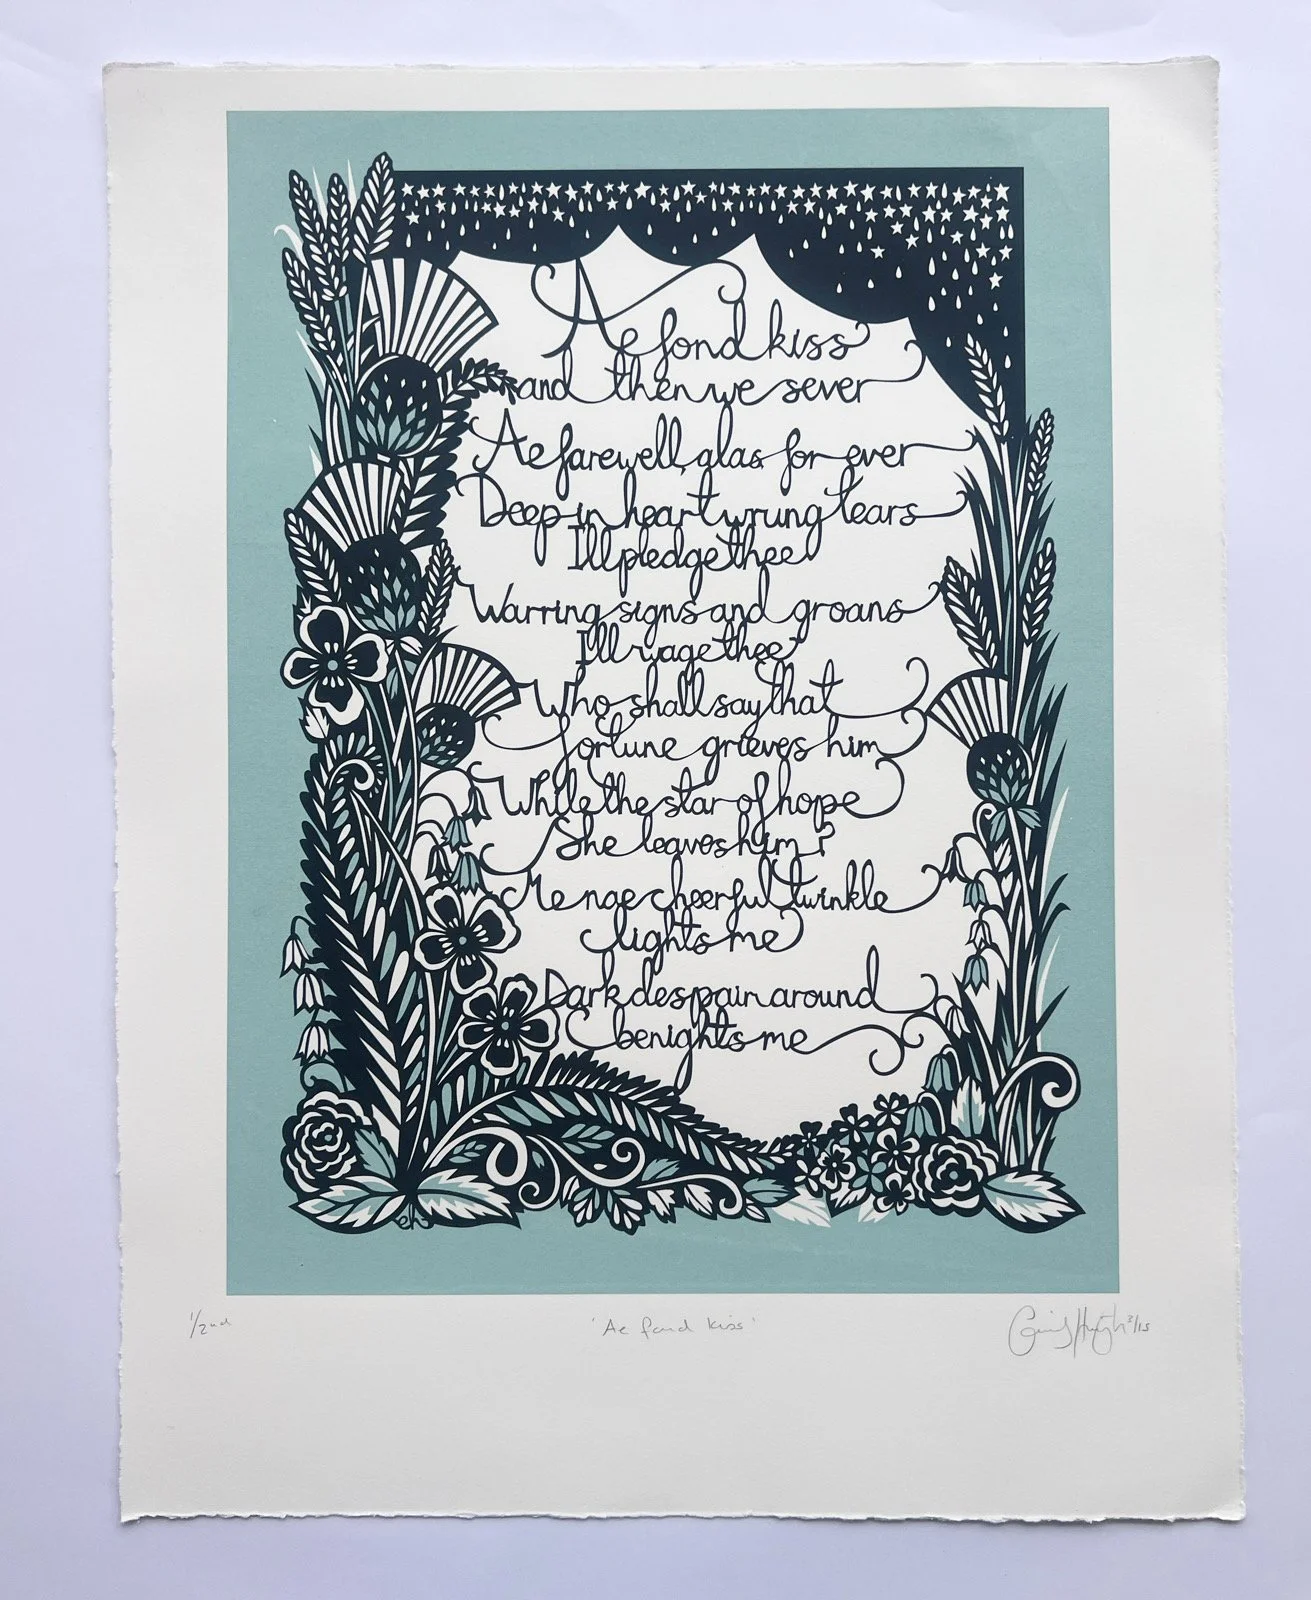 Ae fond kiss
and then we sever
Ae farewell, alas for ever
Deep in heart wrung tears
I'll pledge thee
Warring signs and groans
I'll wage thee
Who shall say that
fortune grieves him
While the star of hope
She leaves him?
Me nae cheerful twinkle
lights me
Dark despair around
benights me
eh
1/2nd
'Ae fond kiss'